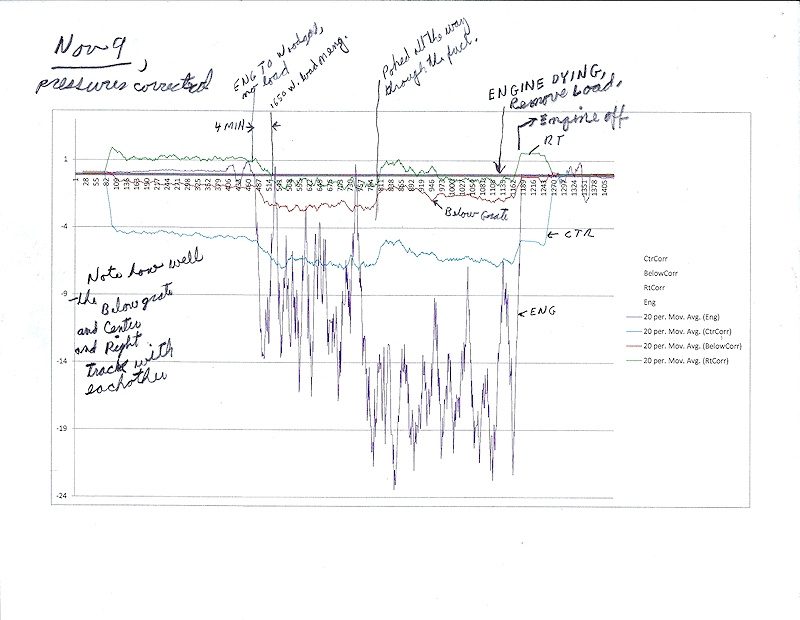 Nov 9,
pressures corrected
ENG TO Woodgas,
no load
1650 W. load on eng.
Poked all the way
through the fuel.
ENGINE DYING,
Remove Load,
Engine off
4 MIN
RT
Below Grate
CTR
ENG
Note how well
the Below grate
and Center
and Right
track with
eachother
1
-4
-9
-14
-19
-24
1 28 55 82 109 136 163 190 217 244 271 298 325 352 379 406 433 460 487 514 541 568 595 622 649 676 703 730 757 784 811 838 865 892 919 946 973 1000 1027 1054 1081 1108 1135 1162 1189 1216 1243 1270 1297 1324 1351 1378 1405
CtrCorr
BelowCorr
RtCorr
Eng
20 per. Mov. Avg. (Eng)
20 per. Mov. Avg. (CtrCorr)
20 per. Mov. Avg. (BelowCorr)
20 per. Mov. Avg. (RtCorr)